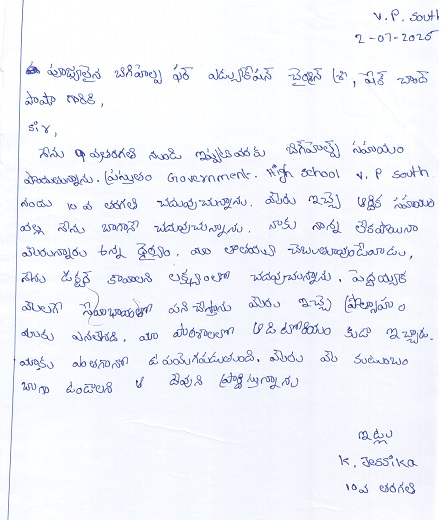 V.P. South
2-07-2025
పూజ్యులైన బిగ్‌హెల్ప్ ఫర్ ఎడ్యుకేషన్ చైర్మన్ శ్రీ, షేక్ చాంద్
పాషా గారికి,
Sir,
నేను 9వ తరగతి నుండి ఇప్పటివరకు బిగ్‌హెల్ప్ సహాయం
పొందుతున్నాను. ప్రస్తుతం Government. High school V.P South.
నందు 10వ తరగతి చదువుచున్నాను. మీరు ఇచ్చే ఆర్థిక సహాయం
వల్ల నేను బాగానే చదువుచున్నాను. నాకు నాన్న లేకపోయినా
మీరున్నారు అన్న ధైర్యం. మా తాతయ్య చెబుతూవుండేవాడు,
నేను డాక్టర్ కావాలని లక్ష్యంతో చదువుచున్నాను. పెద్దయ్యాక
మీలాగే సేవాభావంతో పని చేస్తాను మీరు ఇచ్చే ప్రోత్సాహం
మాకు ఎనలేనిది. మా పాఠశాలలో ఆడిటోరియం కుడా ఇచ్చారు.
మాకు ఎంతగానో ఉపయోగపడుతుంది. మీరు మీ కుటుంబం
బాగా ఉండాలని ఆ దేవుని ప్రార్థిస్తున్నాను
ఇట్లు
K. Jessika
10వ తరగతి